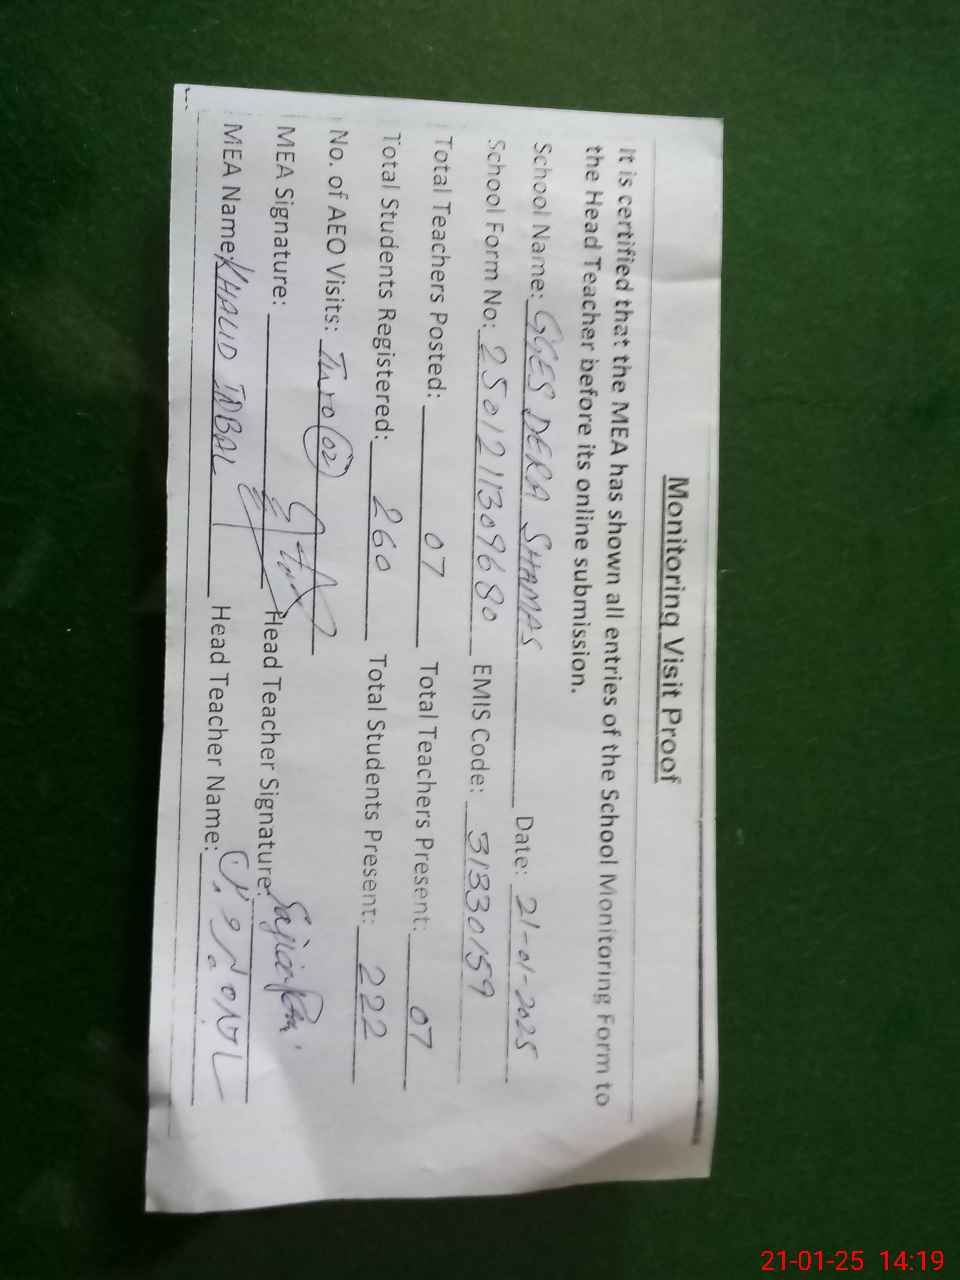 Monitoring Visit Proof
It is certified that the MEA has shown all entries of the School Monitoring Form to
the Head Teacher before its online submission.
School Name: GGES DERA SHAMAS Date: 21-01-2025
School Form No: 2501211309680 EMIS Code: 31330159
Total Teachers Posted: 07 Total Teachers Present: 07
Total Students Registered: 260 Total Students Present: 222
No. of AEO Visits: Two (02)
MEA Signature: Head Teacher Signature:
MEA Name: KHALID IQBAL Head Teacher Name:
21-01-25 14:19